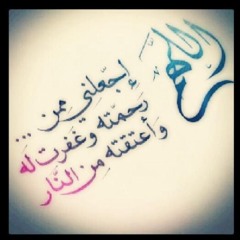 اللهم
إجعلني ممن ...
رحمته وغفرت له
وأعتقته من النار